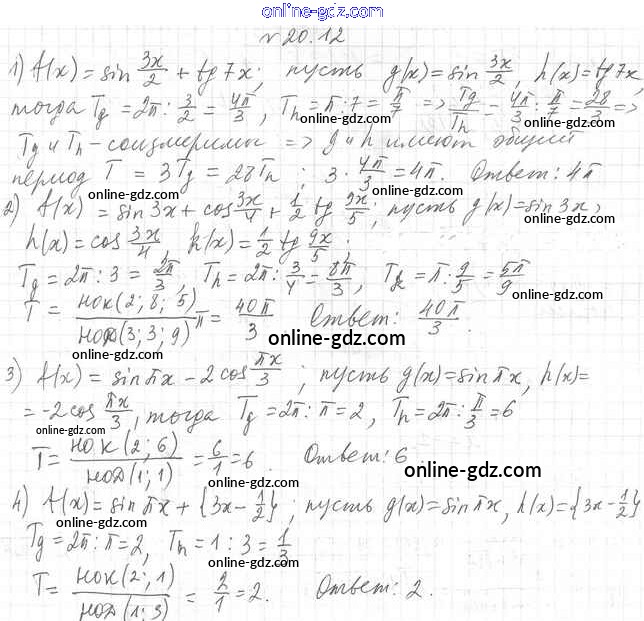 online-gdz.com
№ 20.12
1) f(x) = sin 3x/2 + tg 7x; пусть g(x) = sin 3x/2, h(x) = tg 7x,
тогда Tg = 2π : 3/2 = 4π/3, Th = π : 7 = π/7 => Tg/Th = 4π/3 : π/7 = 28/3 =>
online-gdz.com online-gdz.com
Tg и Th - соизмеримы => g и h имеют общий
период T = 3Tg = 28Th ; 3 · 4π/3 = 4π. Ответ: 4π
online-gdz.com online-gdz.com
2) f(x) = sin 3x + cos 3x/4 + 1/2 tg 9x/5; пусть g(x) = sin 3x,
h(x) = cos 3x/4, k(x) = 1/2 tg 9x/5;
online-gdz.com online-gdz.com
Tg = 2π : 3 = 2π/3, Th = 2π : 3/4 = 8π/3, Tk = π : 9/5 = 5π/9
online-gdz.com
T = НОК(2; 8; 5)/НОД(3; 3; 9) π = 40π/3. Ответ: 40π/3.
online-gdz.com
online-gdz.com
3) f(x) = sin πx - 2 cos πx/3 ; пусть g(x) = sin πx, h(x) =
online-gdz.com
= -2 cos πx/3, тогда Tg = 2π : π = 2, Th = 2π : π/3 = 6
online-gdz.com
T = НОК(2; 6)/НОД(1; 1) = 6/1 = 6. Ответ: 6
online-gdz.com
4) f(x) = sin πx + {3x - 1/2} ; пусть g(x) = sin πx, h(x) = {3x - 1/2}
online-gdz.com online-gdz.com
Tg = 2π : π = 2, Th = 1 : 3 = 1/3
online-gdz.com
T = НОК(2; 1)/НОД(1; 3) = 2/1 = 2. Ответ: 2.
online-gdz.com